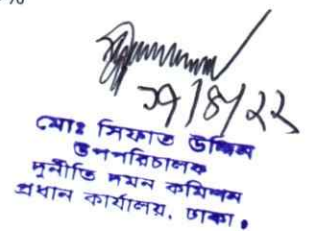 ২৭/৪/২২
মোঃ সিফাত উদ্দিন
উপপরিচালক
দুর্নীতি দমন কমিশন
প্রধান কার্যালয়, ঢাকা।